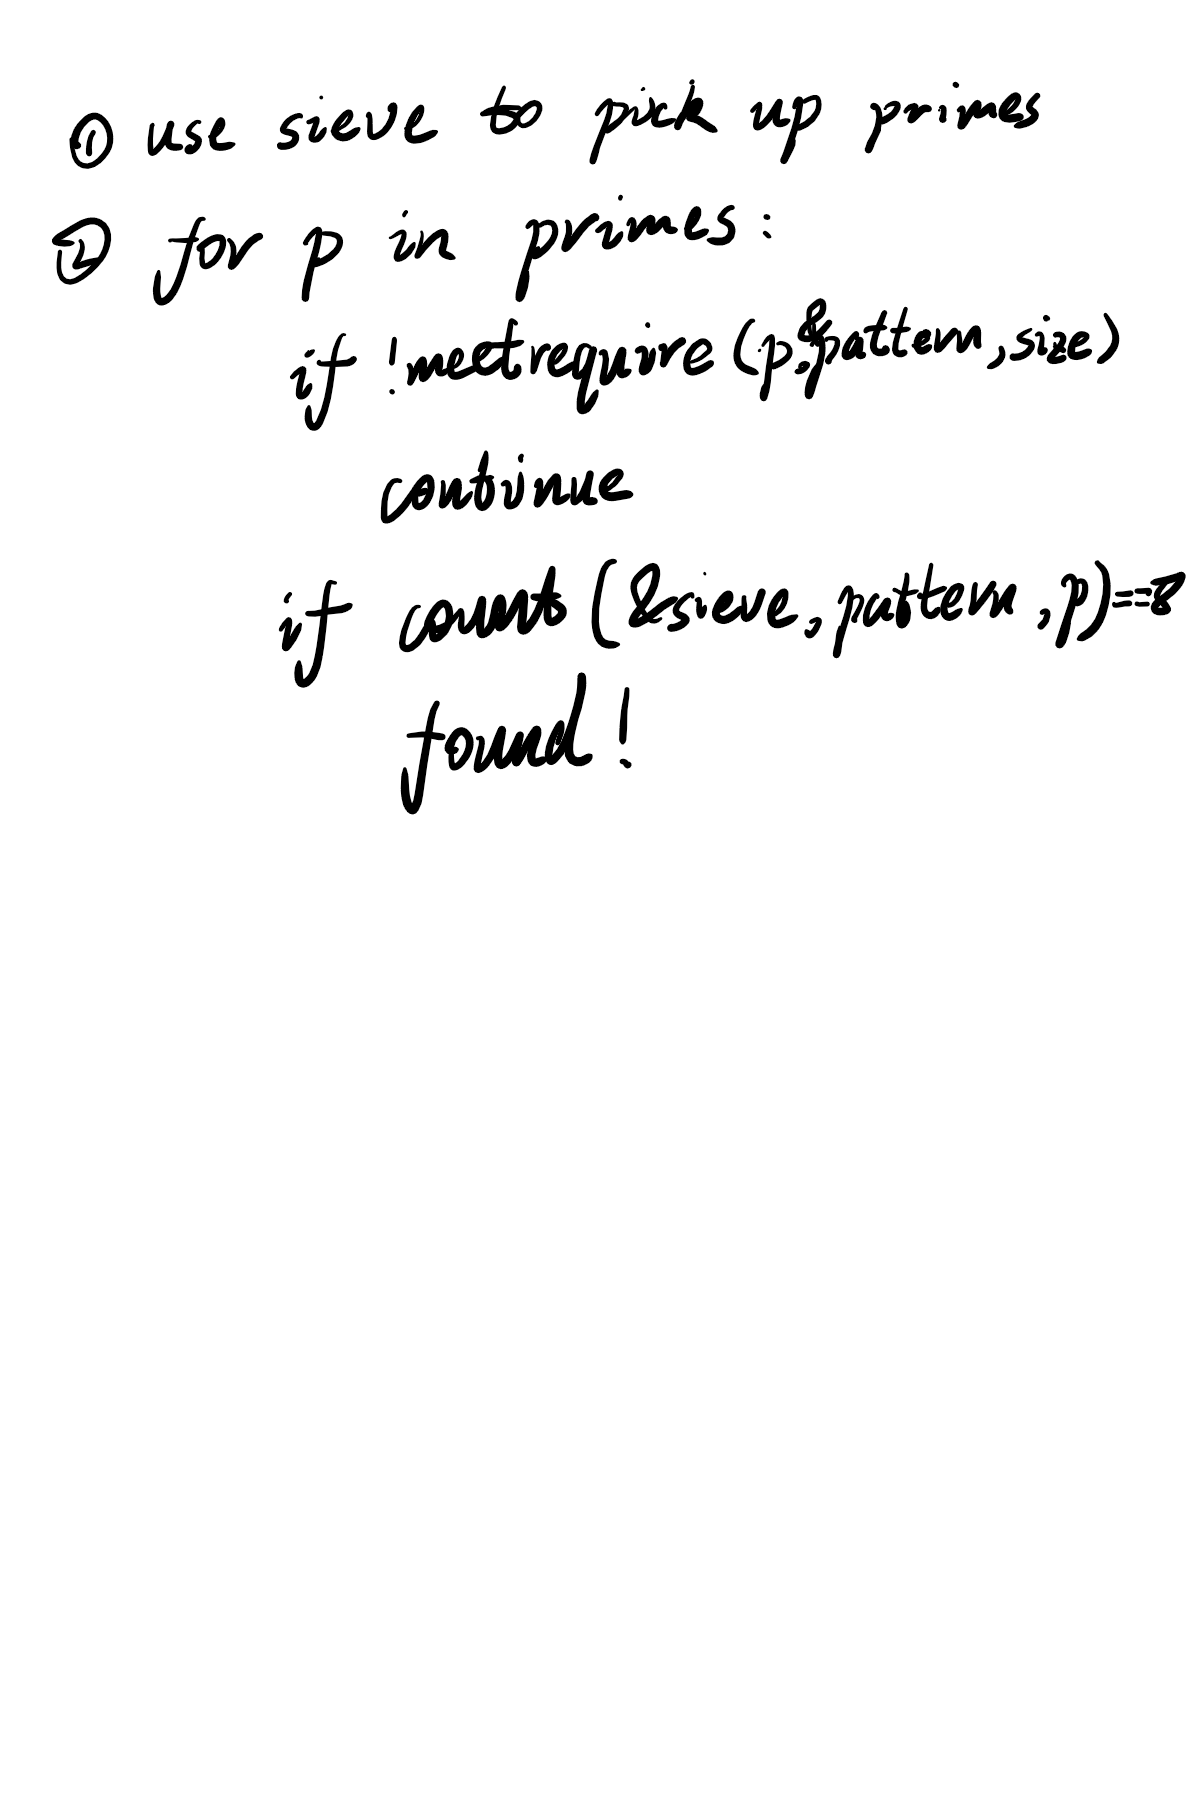 ① use sieve to pick up primes
② for p in primes:
if !meetrequire(p,&pattern,size)
continue
if count(&sieve,pattern,p)==8
found!